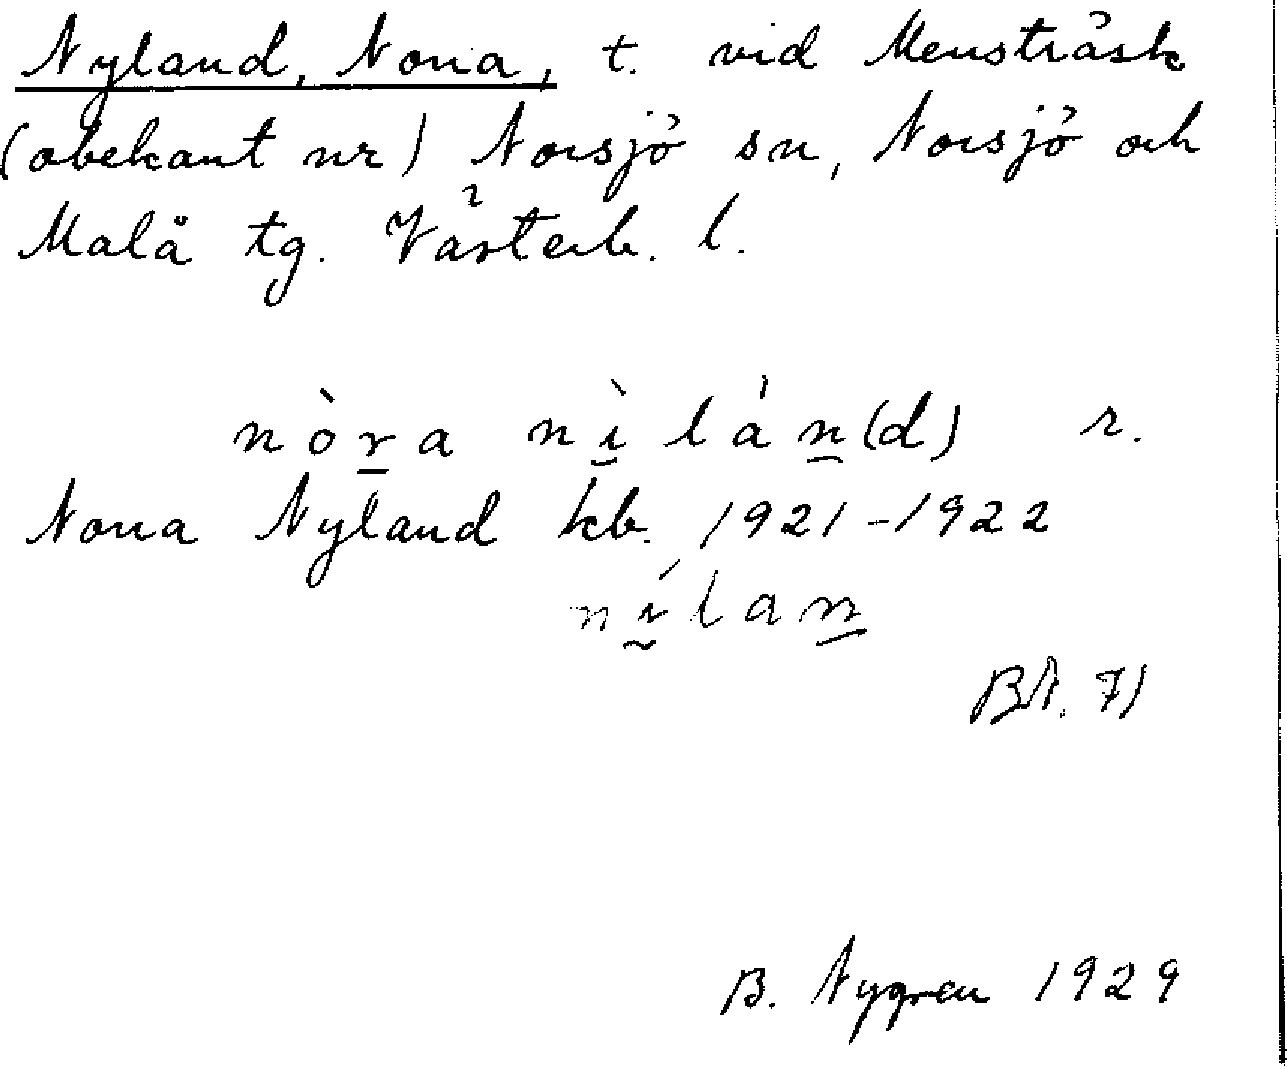 Nyland, Norra, t. vid Mensträsk
(obekant nr) Norsjö sn, Norsjö och
Malå tg. Västerb. l.
nòra nìlán(d) r.
Norra Nyland kb. 1921-1922
nílan
BN. 71
B. Nygren 1929